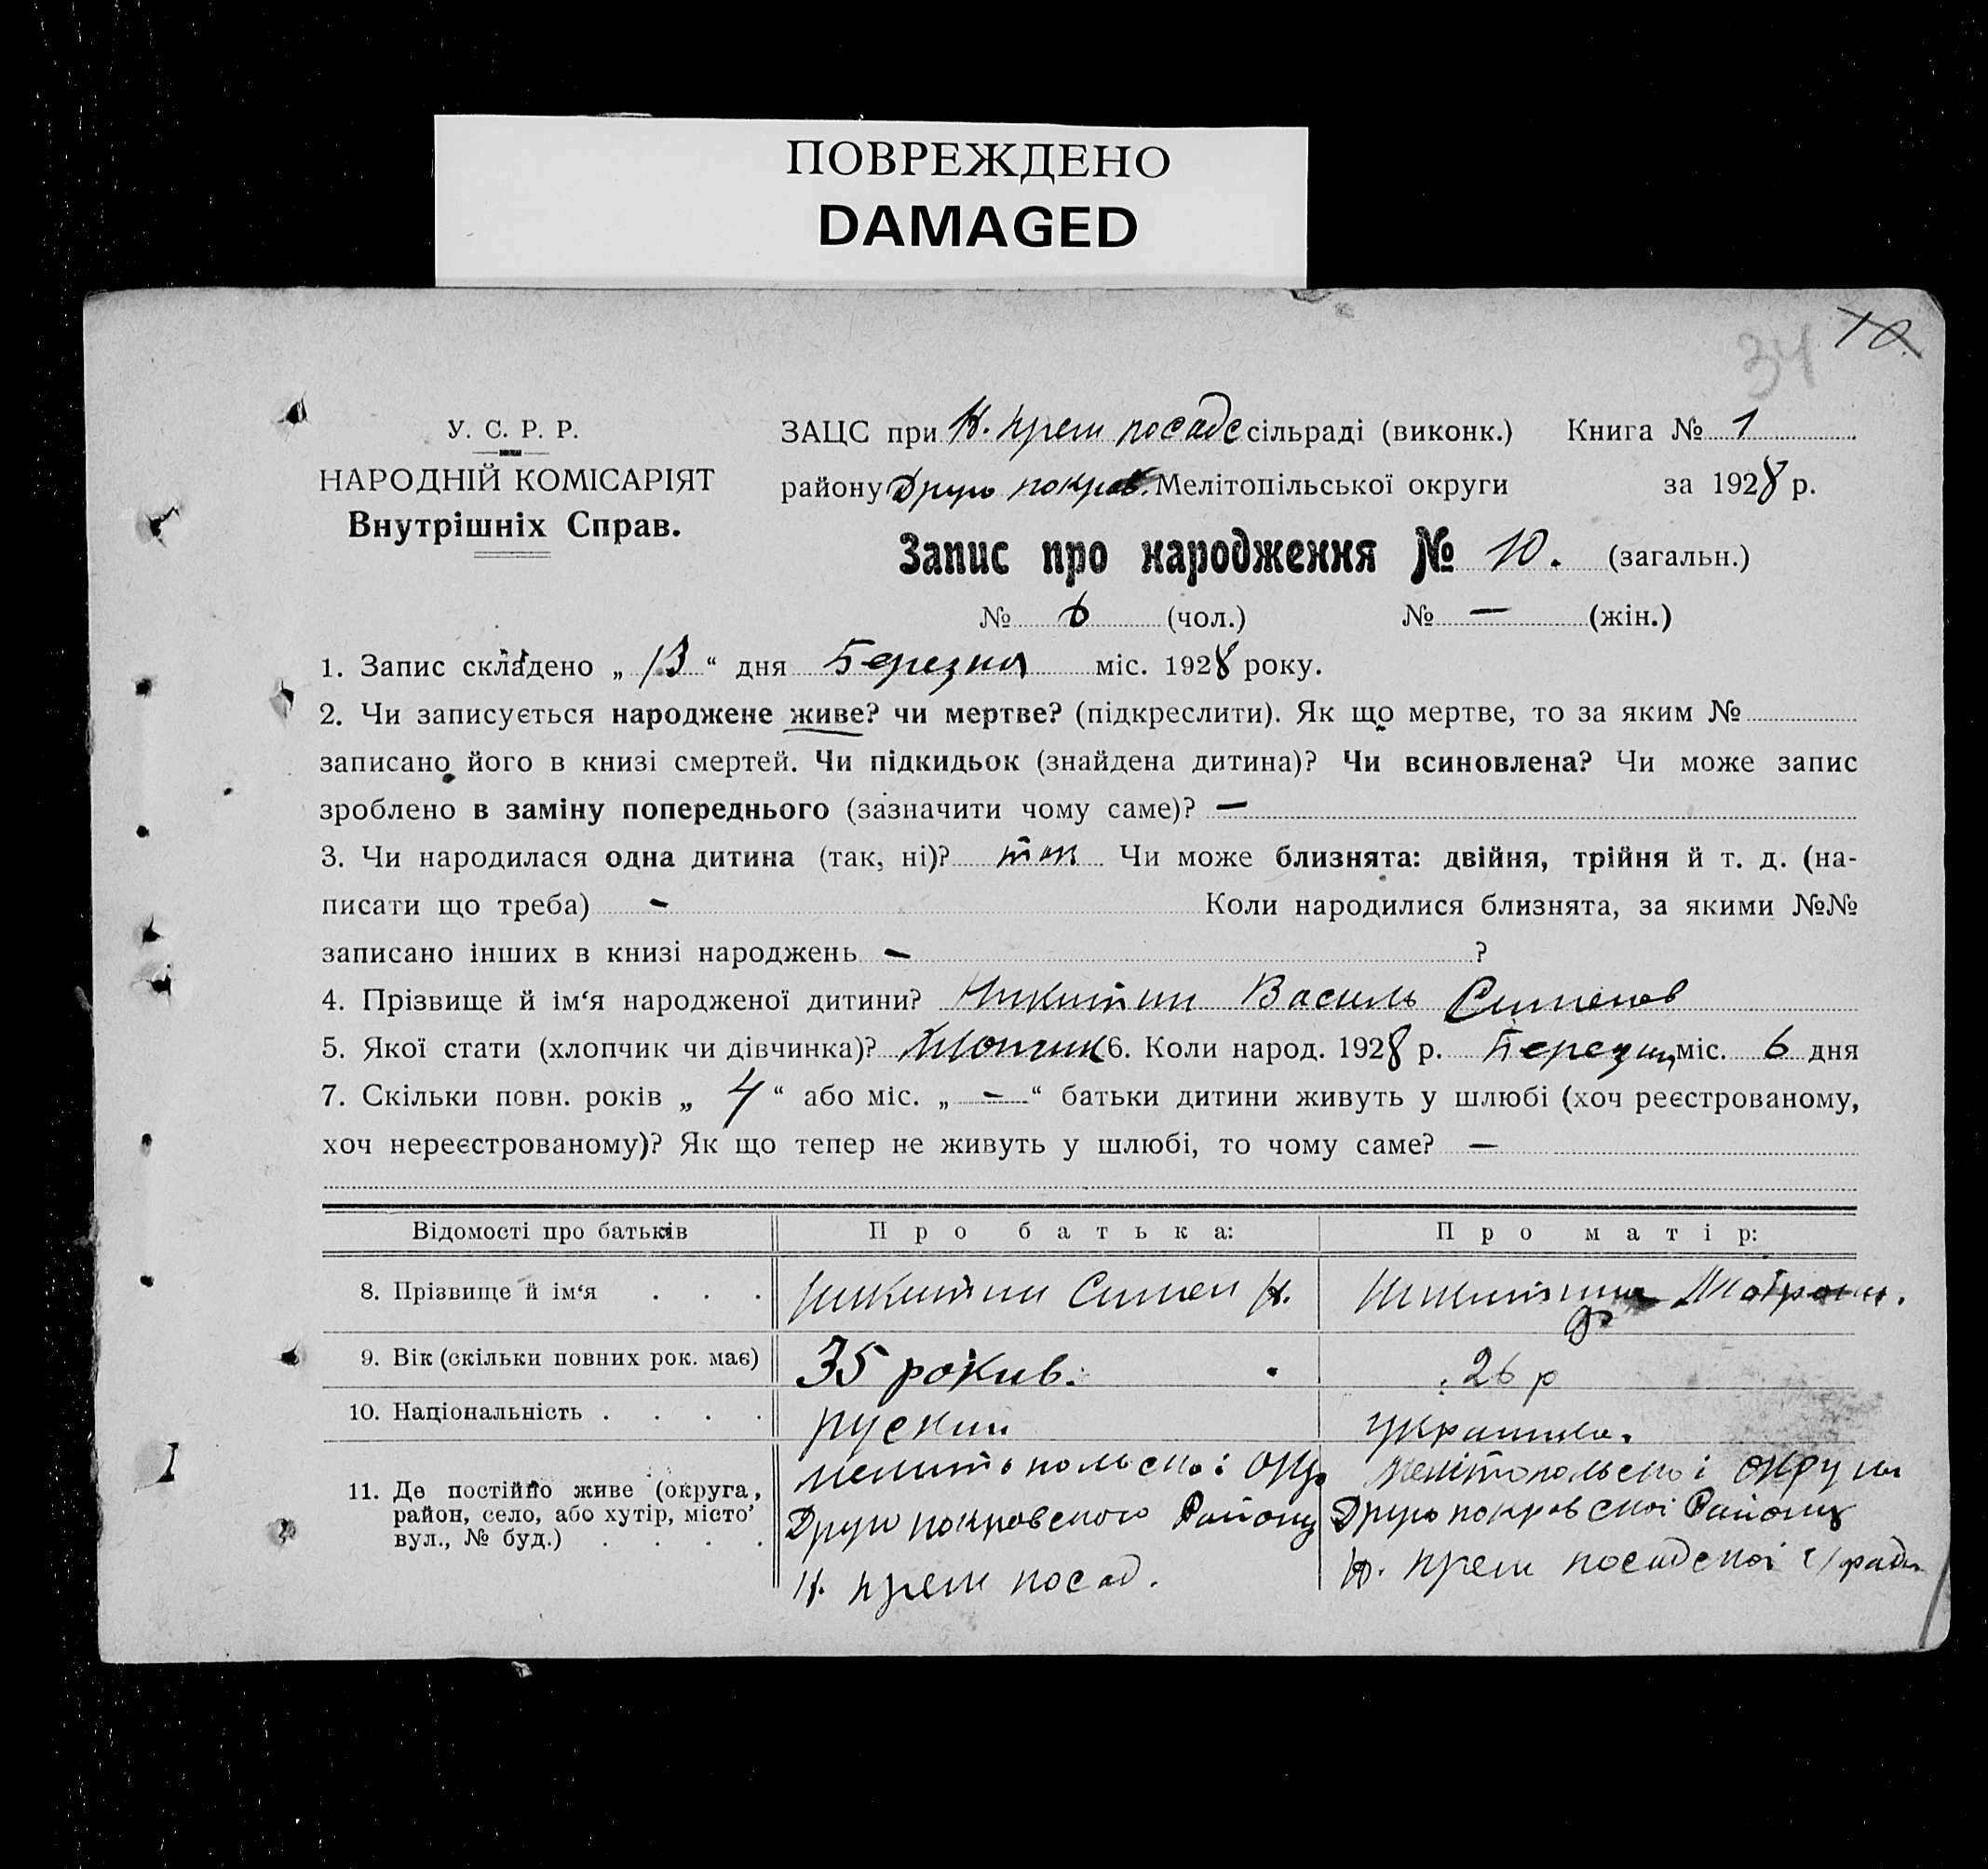 ПОВРЕЖДЕНО
DAMAGED
34 10.
У. С. Р. Р.
НАРОДНІЙ КОМІСАРІЯТ
Внутрішніх Справ.
ЗАЦС при Н. Крем посадс сільраді (виконк.) Книга № 1
району Друго покров. Мелітопільської округи за 1928 р.
Запис про народження № 10. (загальн.)
№ 6 (чол.) № — (жін.)
1. Запис складено „ 13 “ дня Березня міс. 1928 року.
2. Чи записується народжене живе? чи мертве? (підкреслити). Як що мертве, то за яким №
записано його в книзі смертей. Чи підкидьок (знайдена дитина)? Чи всиновлена? Чи може запис
зроблено в заміну попереднього (зазначити чому саме)? —
3. Чи народилася одна дитина (так, ні)? так Чи може близнята: двійня, трійня й т. д. (на-
писати що треба) - Коли народилися близнята, за якими №№
записано інших в книзі народжень — ?
4. Прізвище й ім‘я народженої дитини? Никитин Василь Сименов
5. Якої стати (хлопчик чи дівчинка)? Хлопчик 6. Коли народ. 1928 р. Березня міс. 6 дня
7. Скільки повн. років „ 4 “ або міс. „ - “ батьки дитини живуть у шлюбі (хоч реєстрованому,
хоч нереєстрованому)? Як що тепер не живуть у шлюбі, то чому саме? —
Відомості про батьків Про батька: Про матір:
8. Прізвище й ім‘я . . . Никитин Симен Н. Никитина Матрона.
9. Вік (скільки повних рок. має) 35 рокив. 26 р
10. Національність . . . . руский украинка.
11. Де постійно живе (округа, район, село, або хутір, місто’ вул., № буд.) . . . .
Мелитопольскоі Окр Мелітопольскоі Округи
Другопокровского Району Другопокровскоі Району
Н. Крем посад. Н. Крем посадскоі с/ради